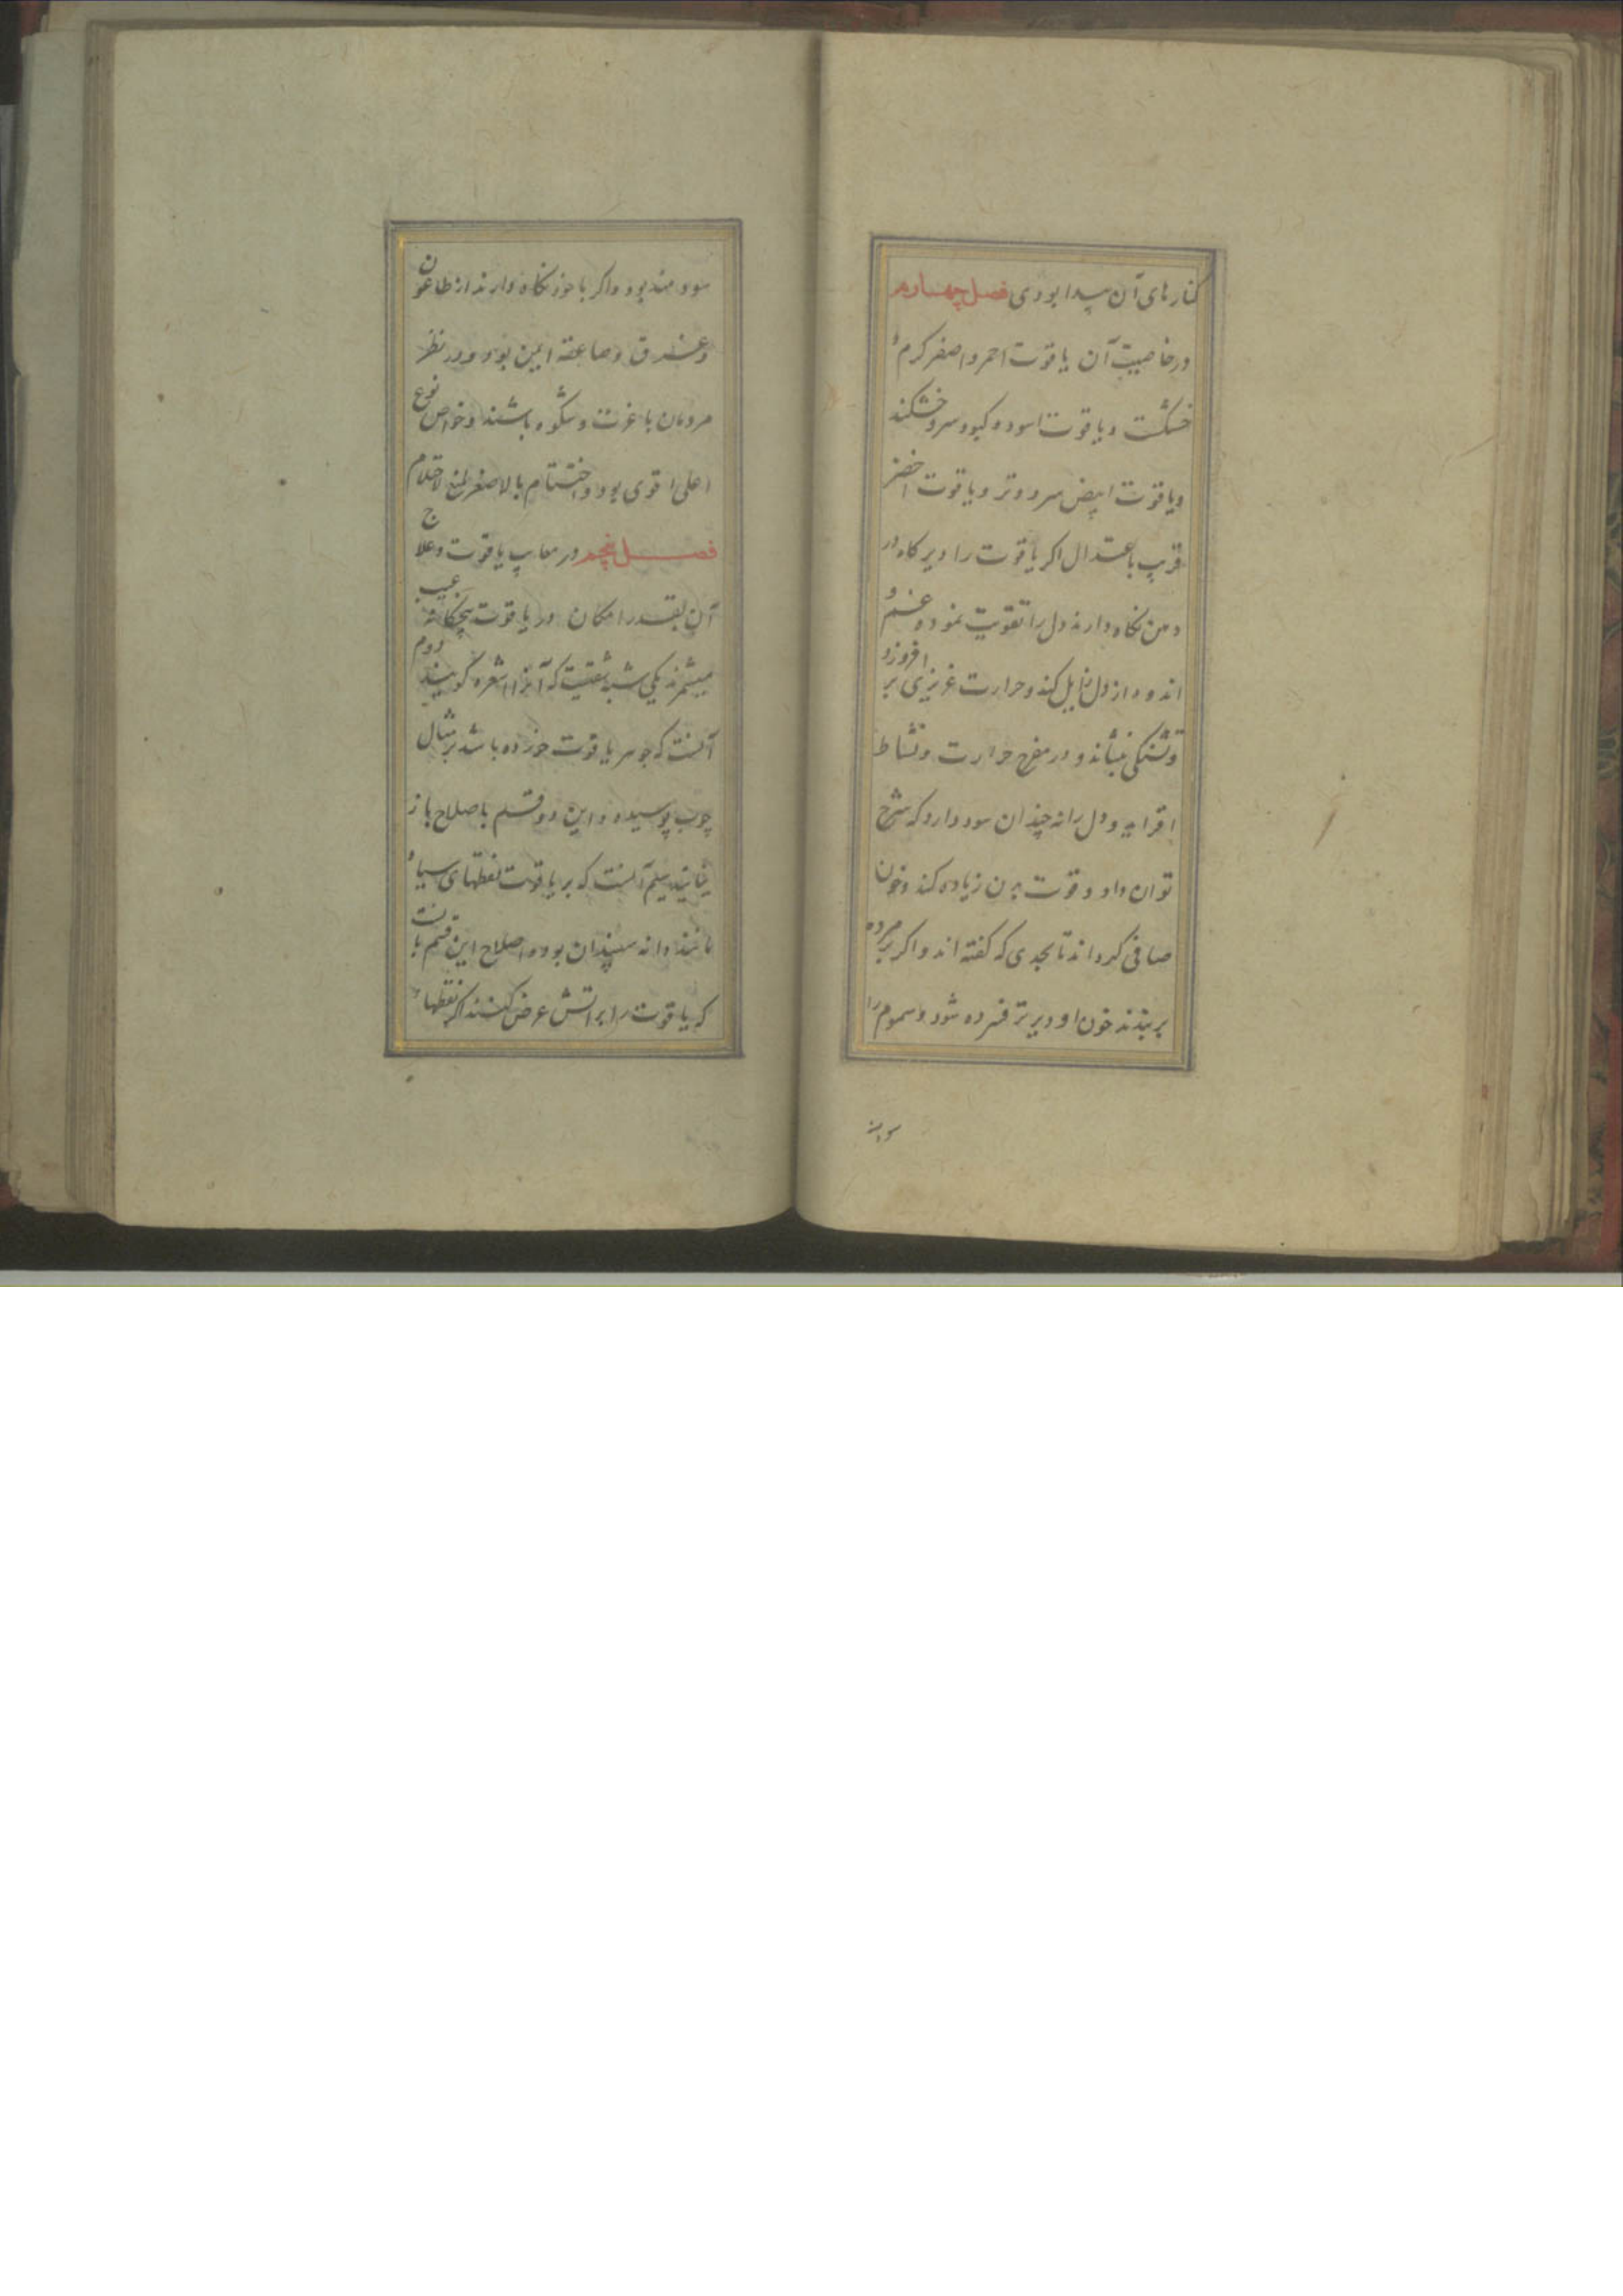 کنارهای آن پیدا بودی فصل چهارم
در خاصیت آن یاقوت احمر و اصفر کرم و
خشکست و یاقوت اسود و کبود سرد و خشکند
و یاقوت ابیض سرد و تر و یاقوت اخضر
قریب باعتدال اکر یاقوت را دیر کاه در
دهن نکاه دارند دل را تقویت نموده غم و
اندوه از دل زایل کند و حرارت غریزی بر افروزد
و تشنکی بنشاند و در مفرح حرارت و نشاط
افزاید و دل را نه چندان سود دارد که شرح
توان داد و قوت بدن زیاده کند و خون
صافی کرداند تا بحدی که کفته اند و اکر بر مرده
بربندند خون او دیرتر فسرده شود و سموم را
سودمند بود و اکر با خود نکاه دارند از طاعون
و غرق و صاعقه ایمن بود و در نظر
مردمان با عزت و شکوه باشند و خواص نوع
اعلی اقوی بود و اختتام بالاصفر لمنع الاحتلام
فصل پنجم در معایب یاقوت و علاج
آن بقدر امکان در یاقوت پنجکانه عیب
میشمرند یکی شبه شقیست که آنرا شعره کویند دوم
آنست که جوهر یاقوت خورده باشد بر مثال
چوب پوسیده و این دو قسم باصلاح باز
نیایند سیم آنست که بر یاقوت نقطهای سیاه
مانند دانه سپندان بود و اصلاح این قسم بانست
که یاقوت را بر اتش عرض کنند اکر نقطها